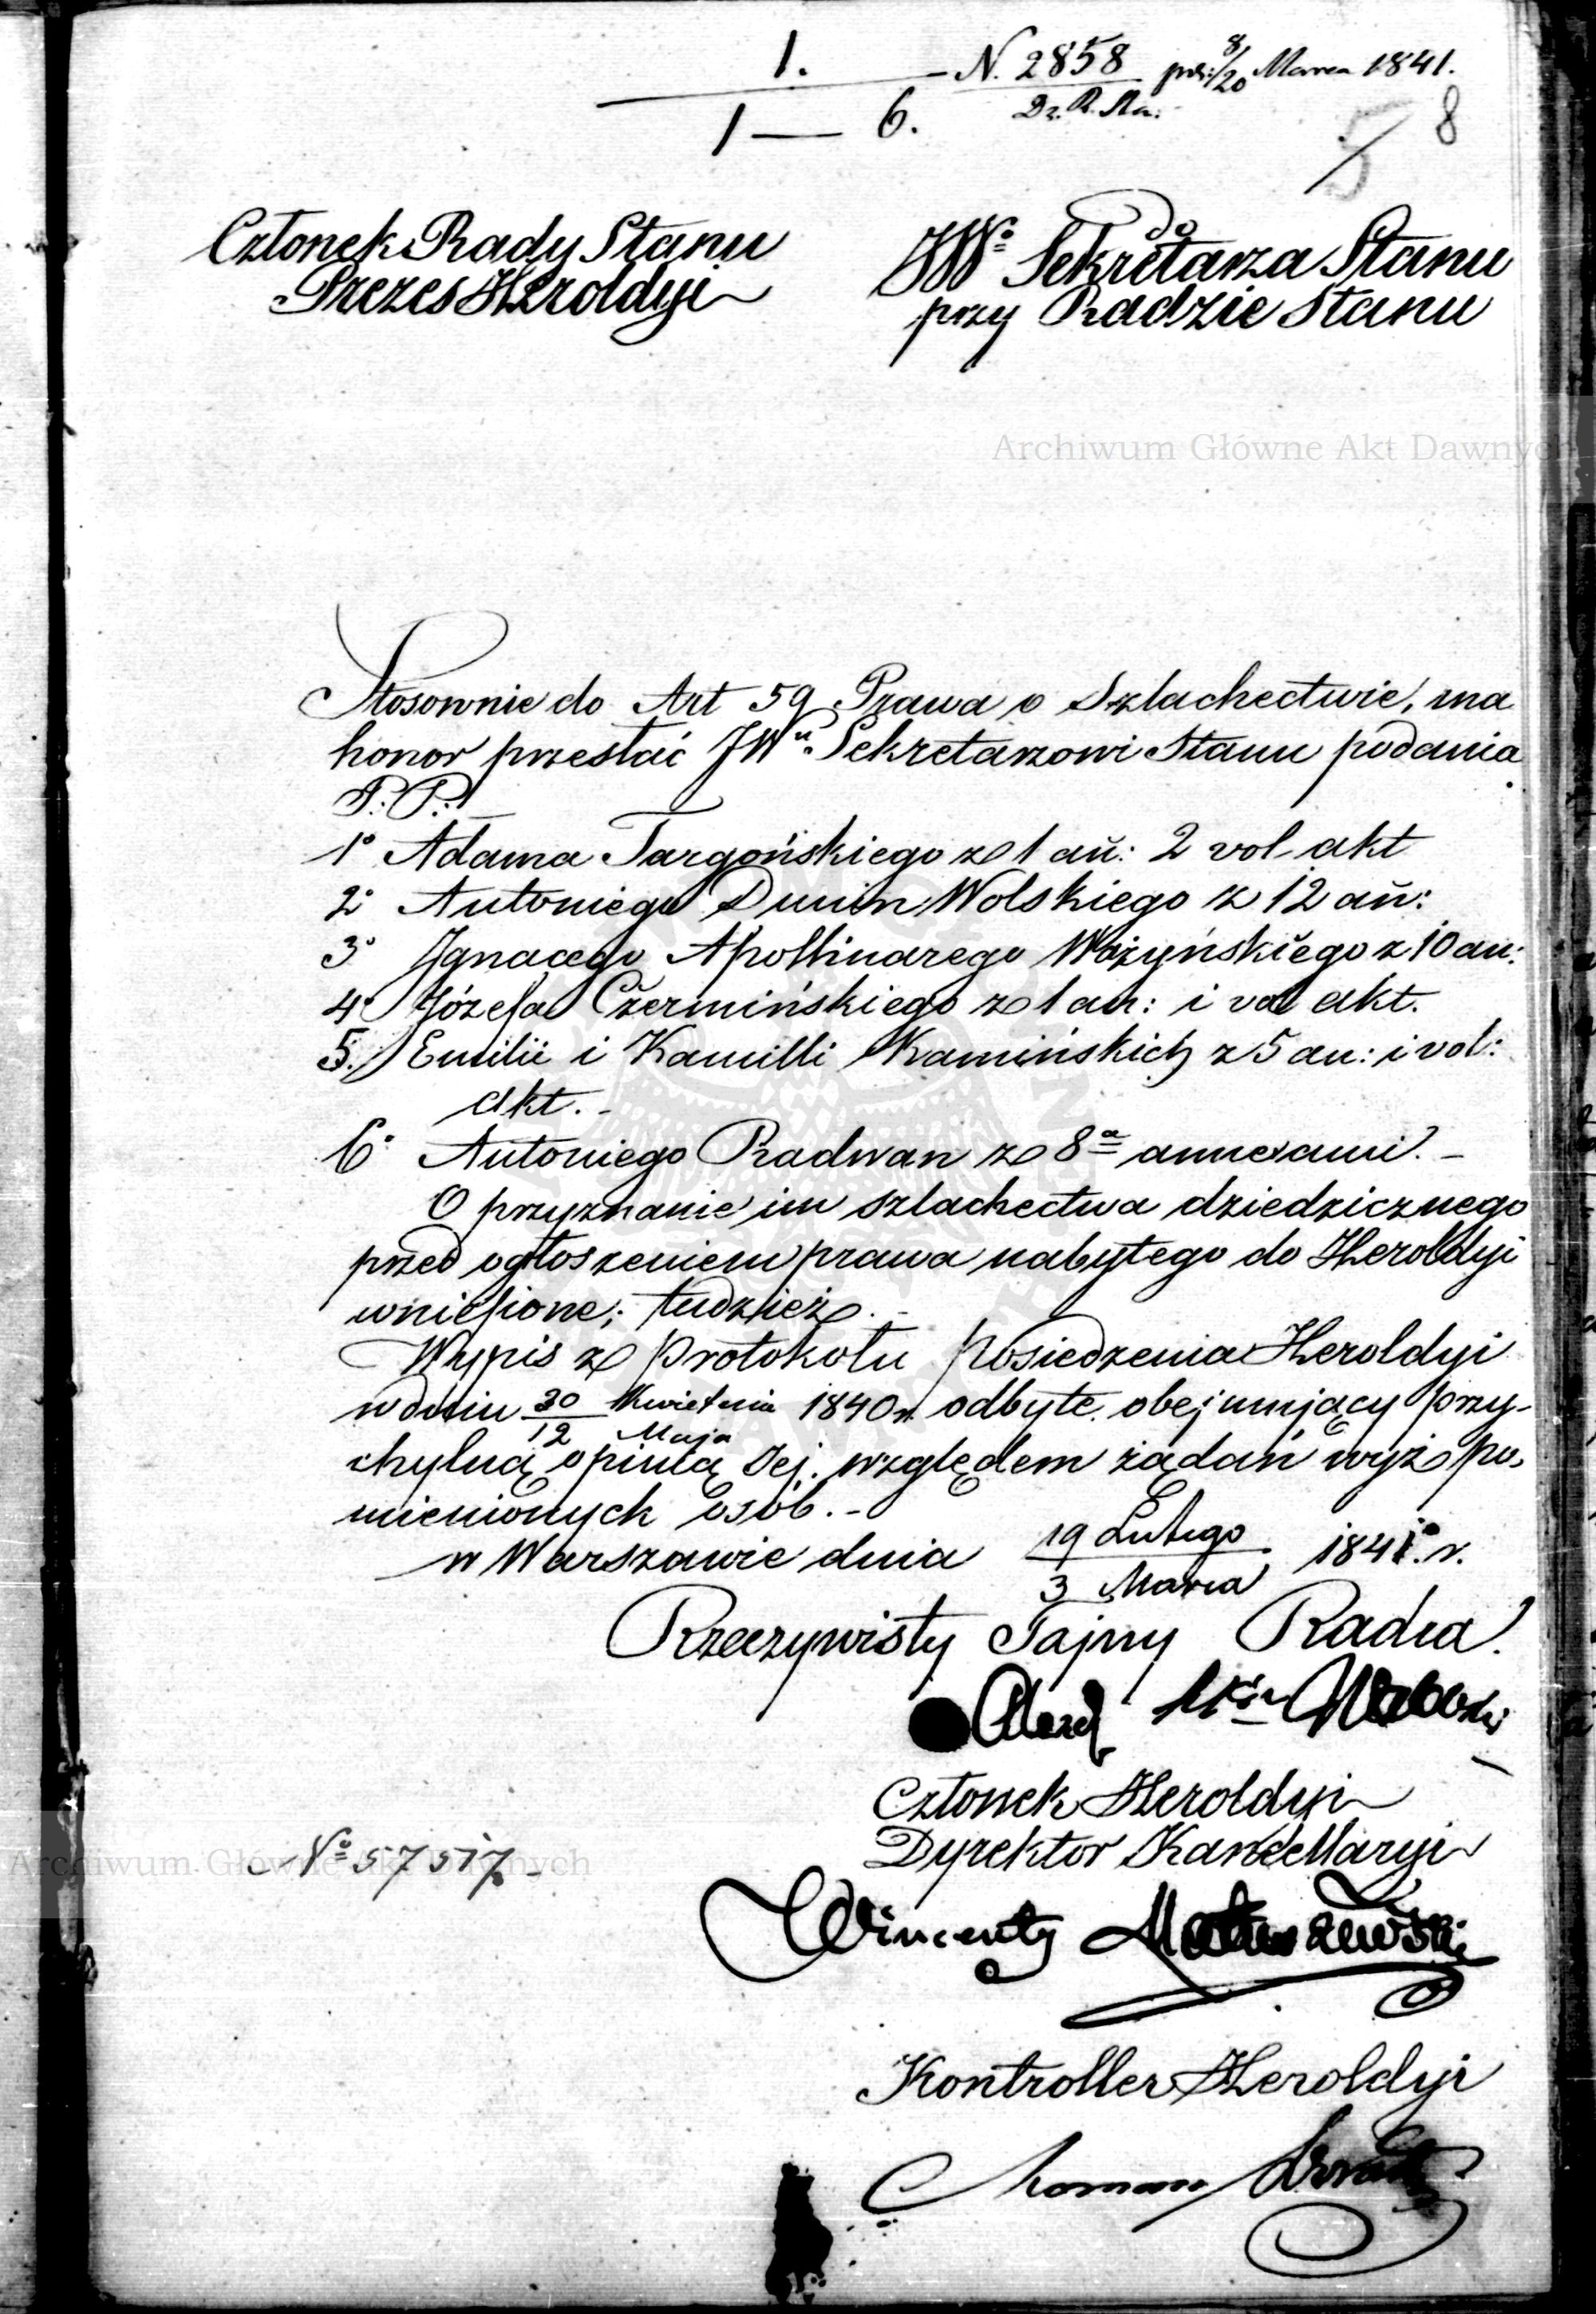 1.
N. 2858 8/20 Marca 1841.
1 — 6.
Dz. R. Sta:
5 8
Członek Rady Stanu
Prezes Heroldyi
Do
JWº Sekretarza Stanu
przy Radzie Stanu
Archiwum Główne Akt Dawnych
Stosownie do Art 59 Prawa o Szlachectwie, ma
honor przesłać JWu. Sekretarzowi Stanu podania
P.: P.:
1º Adama Targońskiego z 1 an̄: 2 vol. akt
2º Antoniego Dunin Wolskiego z 12 an̄:
3º Ignacego Apollinarego Ważyńskiego z 10 an:
4º Józefa Czermińskiego z 1 an: i vol akt.
5. Emilii i Kamilli Kamińskich z 5 an: i vol:
akt. -
6º Antoniego Radwan z 8ª annexami. -
O przyznanie im szlachectwa dziedzicznego
przed ogłoszeniem prawa nabytego do Heroldyi
wniesione; tudzież. -
Wypis z protokołu Posiedzenia Heroldyi
w dniu 30 Kwietnia / 12 Maja 1840 r. odbyte. obejmujący przy-
chylną opinią Jej. względem żądań wyż po-
mienionych osób. -
w Warszawie dnia 19 Lutego / 3 Marca 1841. r.
Rzeczywisty Tajny Radca.
Członek Heroldyi
Dyrektor Kancellaryi
Nº 57517 -
Archiwum Główne Akt Dawnych
Wincenty Matuszewski
Kontroller Heroldyi
Roman